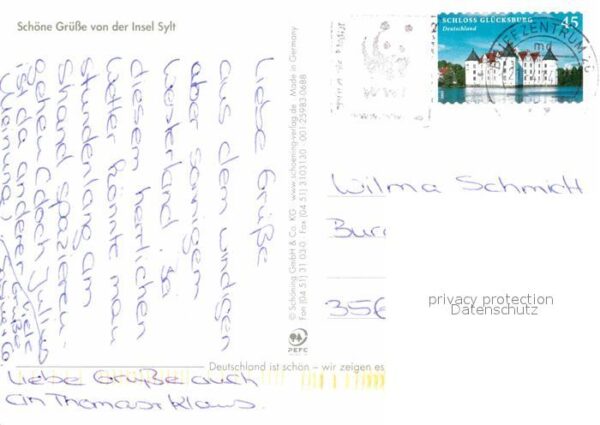 Schöne Grüße von der Insel Sylt
SCHLOSS GLÜCKSBURG 45
Deutschland
BRIEFZENTRUM
Liebe Grüße
aus dem windigen
aber sonnigen
Westerland. Bei
diesem herrlichen
Wetter könnte man
stundenlang am
Strand spazieren-
gehen (doch Julius
ist da anderer
Meinung)
Viele
Grüße
Liebe Grüße auch
an Thomas + Klaus.
© Schöning GmbH & Co. KG · www.schoening-verlag.de · Made in Germany
Fon (04 51) 31 03-0 · Fax (04 51) 3 10 31 30 · 001-25983-0688
PEFC
Deutschland ist schön – wir zeigen es
Wilma Schmidt
Bur
356
privacy protection
Datenschutz